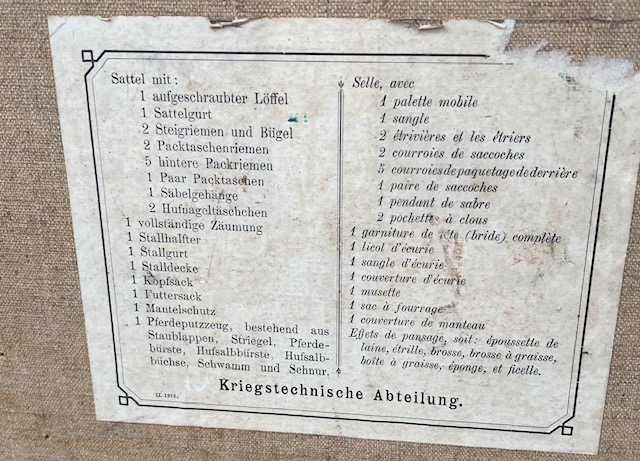 Sattel mit:
1 aufgeschraubter Löffel
1 Sattelgurt
2 Steigriemen und Bügel
2 Packtaschenriemen
5 hintere Packriemen
1 Paar Packtaschen
1 Säbelgehänge
2 Hufnageltäschchen
1 vollständige Zäumung
1 Stallhalfter
1 Stallgurt
1 Stalldecke
1 Kopfsack
1 Futtersack
1 Mantelschutz
1 Pferdeputzzeug, bestehend aus
Staublappen, Striegel, Pferde-
bürste, Hufsalbbürste, Hufsalb-
büchse, Schwamm und Schnur.
Selle, avec
1 palette mobile
1 sangle
2 étrivières et les étriers
2 courroies de sacoches
5 courroies de paquetage de derrière
1 paire de sacoches
1 pendant de sabre
2 pochettes à clous
1 garniture de tête (bride) complète
1 licol d'écurie
1 sangle d'écurie
1 couverture d'écurie
1 musette
1 sac à fourrage
1 couverture de manteau
Effets de pansage, soit: époussette de
laine, étrille, brosse, brosse à graisse,
boîte à graisse, éponge, et ficelle.
Kriegstechnische Abteilung.
II. 1918.